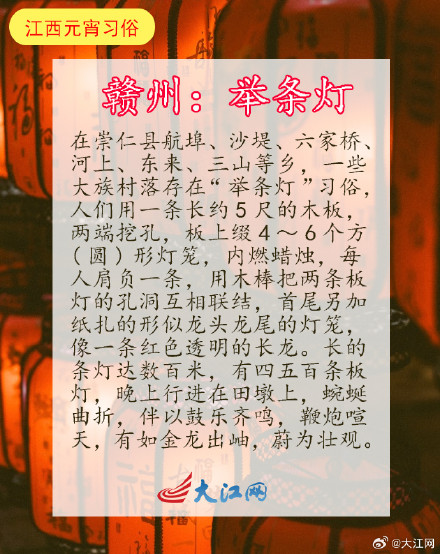 江西元宵习俗
赣州：举条灯
在崇仁县航埠、沙堤、六家桥、
河上、东来、三山等乡，一些
大族村落存在“举条灯”习俗，
人们用一条长约5尺的木板，
两端挖孔，板上缀4～6个方
(圆)形灯笼，内燃蜡烛，每
人肩负一条，用木棒把两条板
灯的孔洞互相联结，首尾另加
纸扎的形似龙头龙尾的灯笼，
像一条红色透明的长龙。长的
条灯达数百米，有四五百条板
灯，晚上行进在田墩上，蜿蜒
曲折，伴以鼓乐齐鸣，鞭炮喧
天，有如金龙出岫，蔚为壮观。
大江网
@大江网